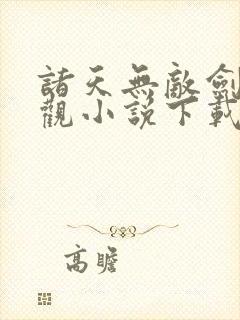 諸天無敵劍
觀小說下載
高瞻